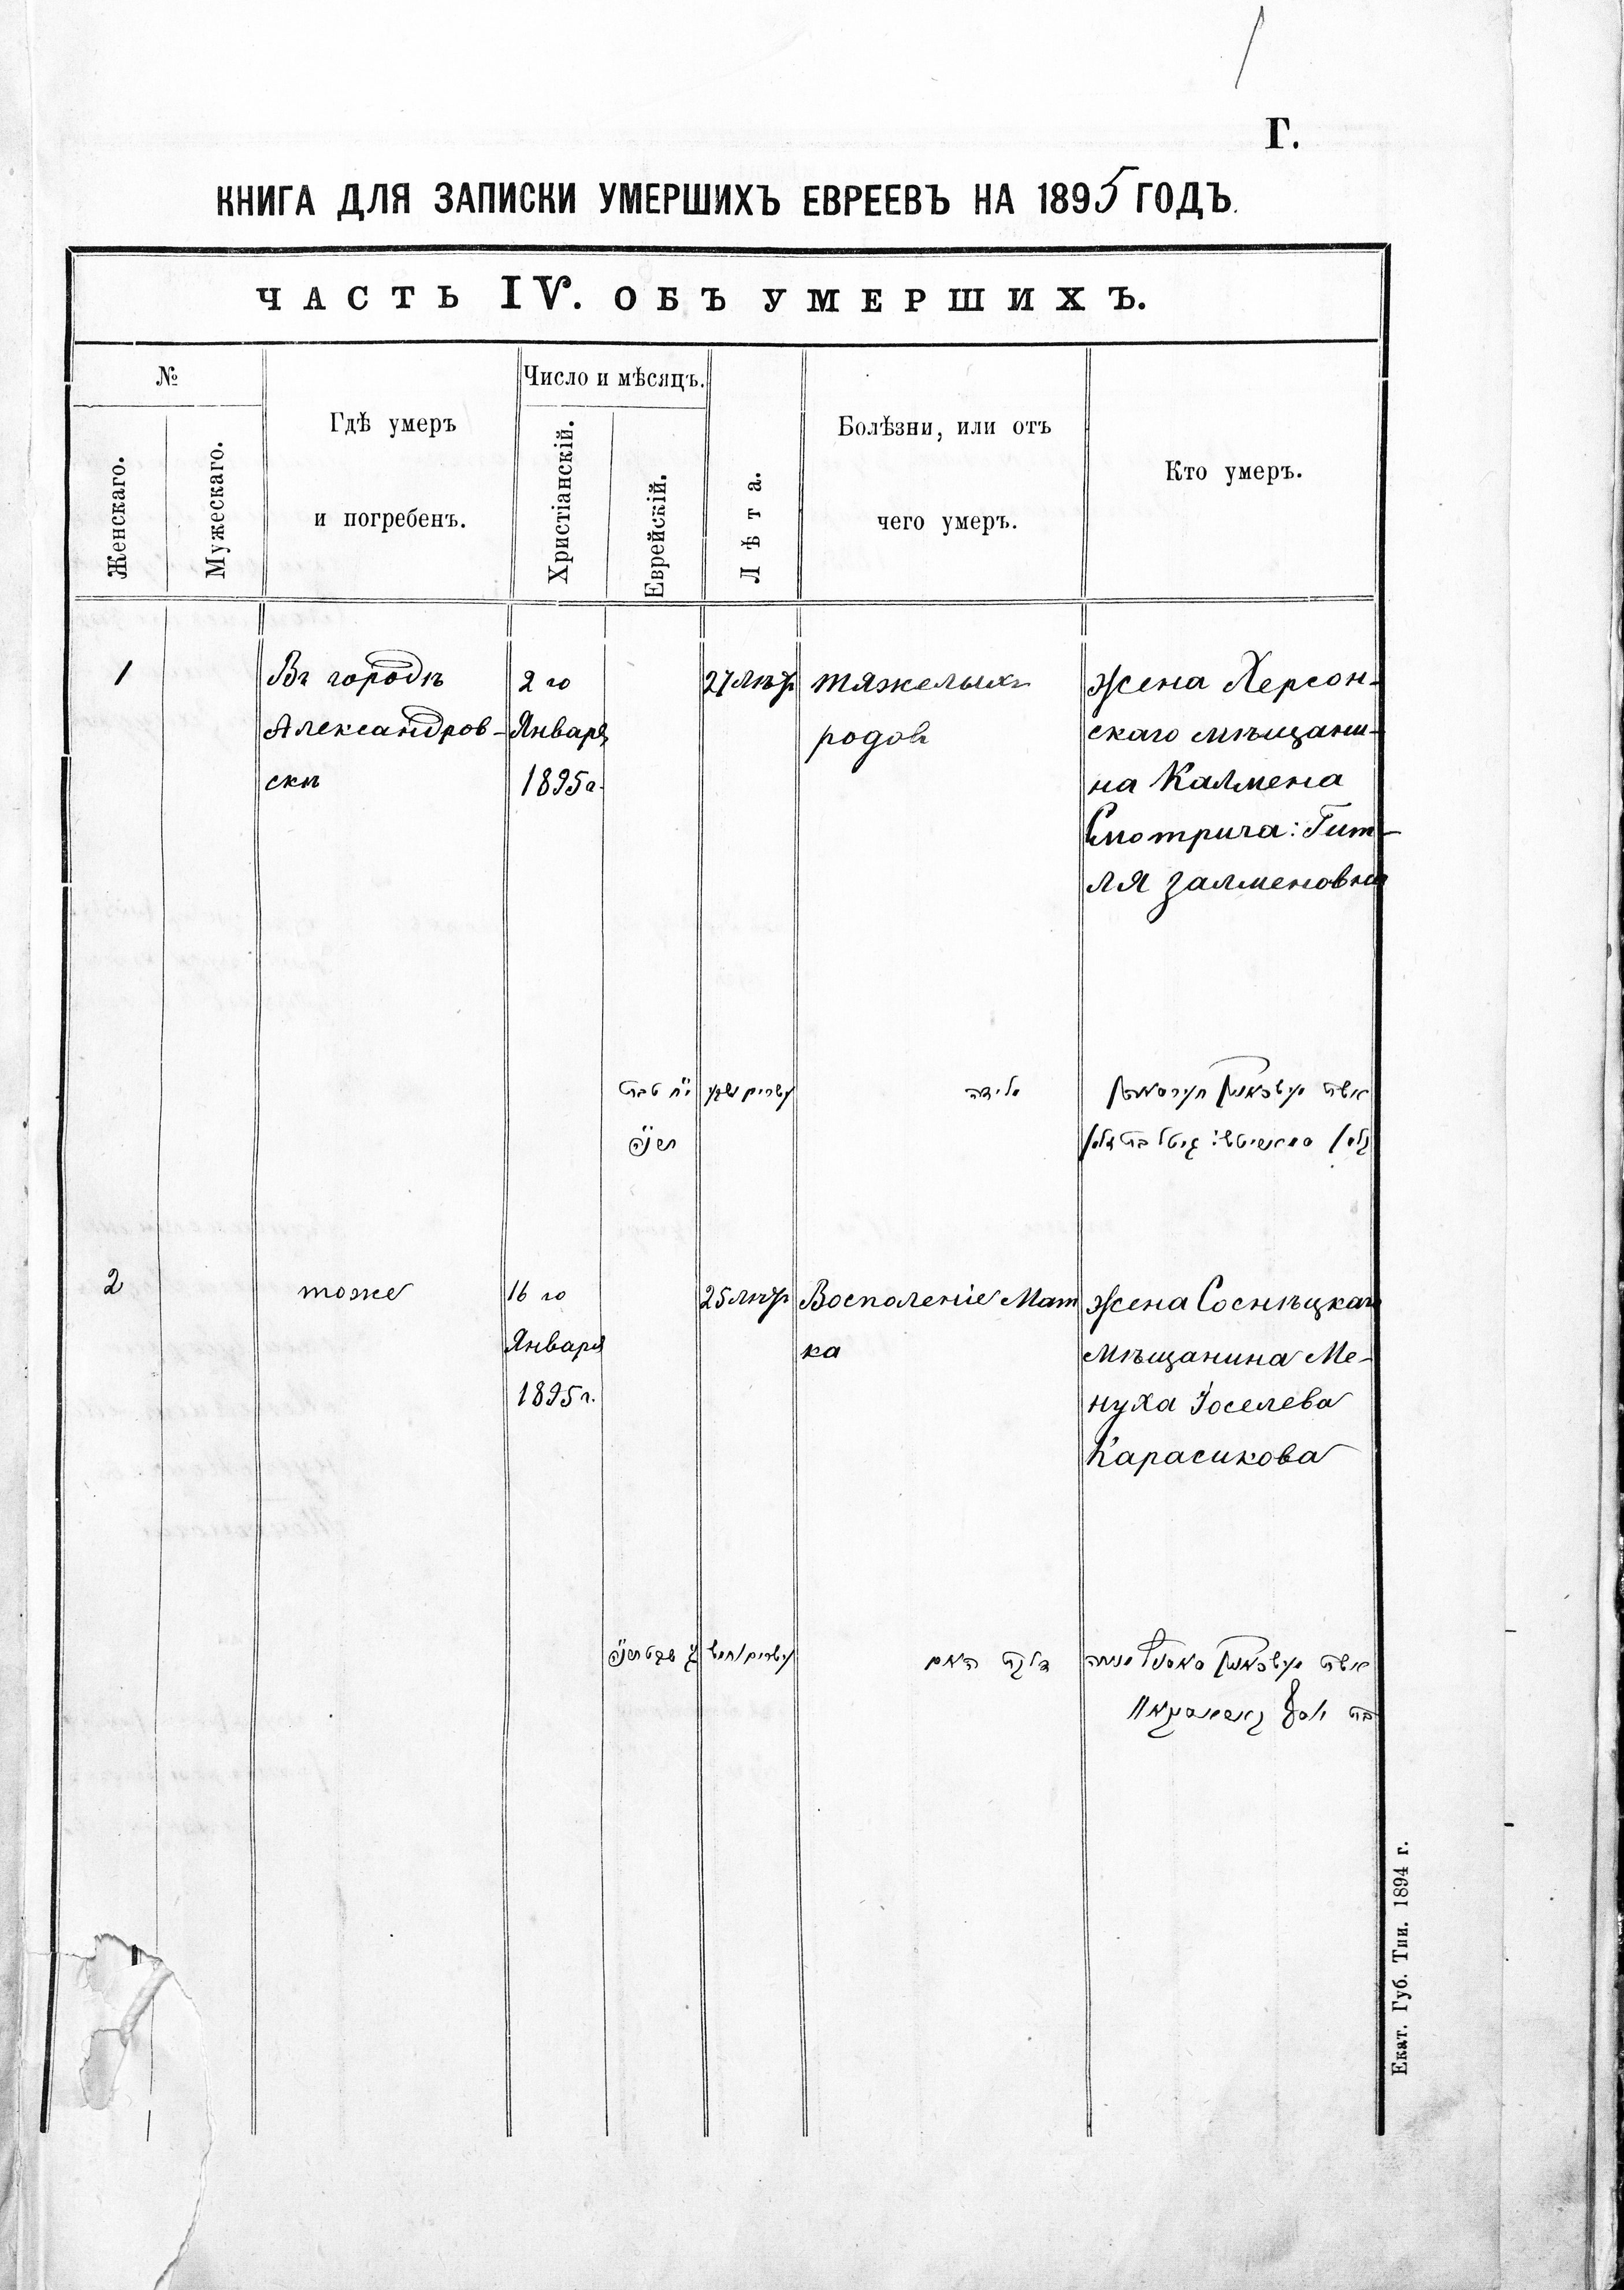 Г.
КНИГА ДЛЯ ЗАПИСКИ УМЕРШИХЪ ЕВРЕЕВЪ НА 1895 ГОДЪ.
ЧАСТЬ IV. ОБЪ УМЕРШИХЪ.
№
Женскаго.
Мужескаго.
Гдѣ умеръ
и погребенъ.
Число и мѣсяцъ.
Христіанскій.
Еврейскій.
Лѣта.
Болѣзни, или отъ
чего умеръ.
Кто умеръ.
1
Въ городѣ
Александров-
скѣ
2 го
Января
1895 г.
27 лѣтъ
тяжелыхъ
родовъ
жена Херсон-
скаго мѣщани-
на Калмена
Смотрича: Гит-
ля Залменовна
י״ח טבת
תרנ״ה
עשרים ושבע
לידה
אשת
גיטל בת
2
тоже
16 го
Января
1895 г.
25 лѣтъ
Восполеніе Мат
ка
жена Сосницкаго
мѣщанина Ме-
нуха Іоселева
Карасикова
שבט תרנ״ה
עשרים וחמש
דלקת האם
אשת
מנוחה
בת יוסף
Екат. Губ. Тип. 1894 г.